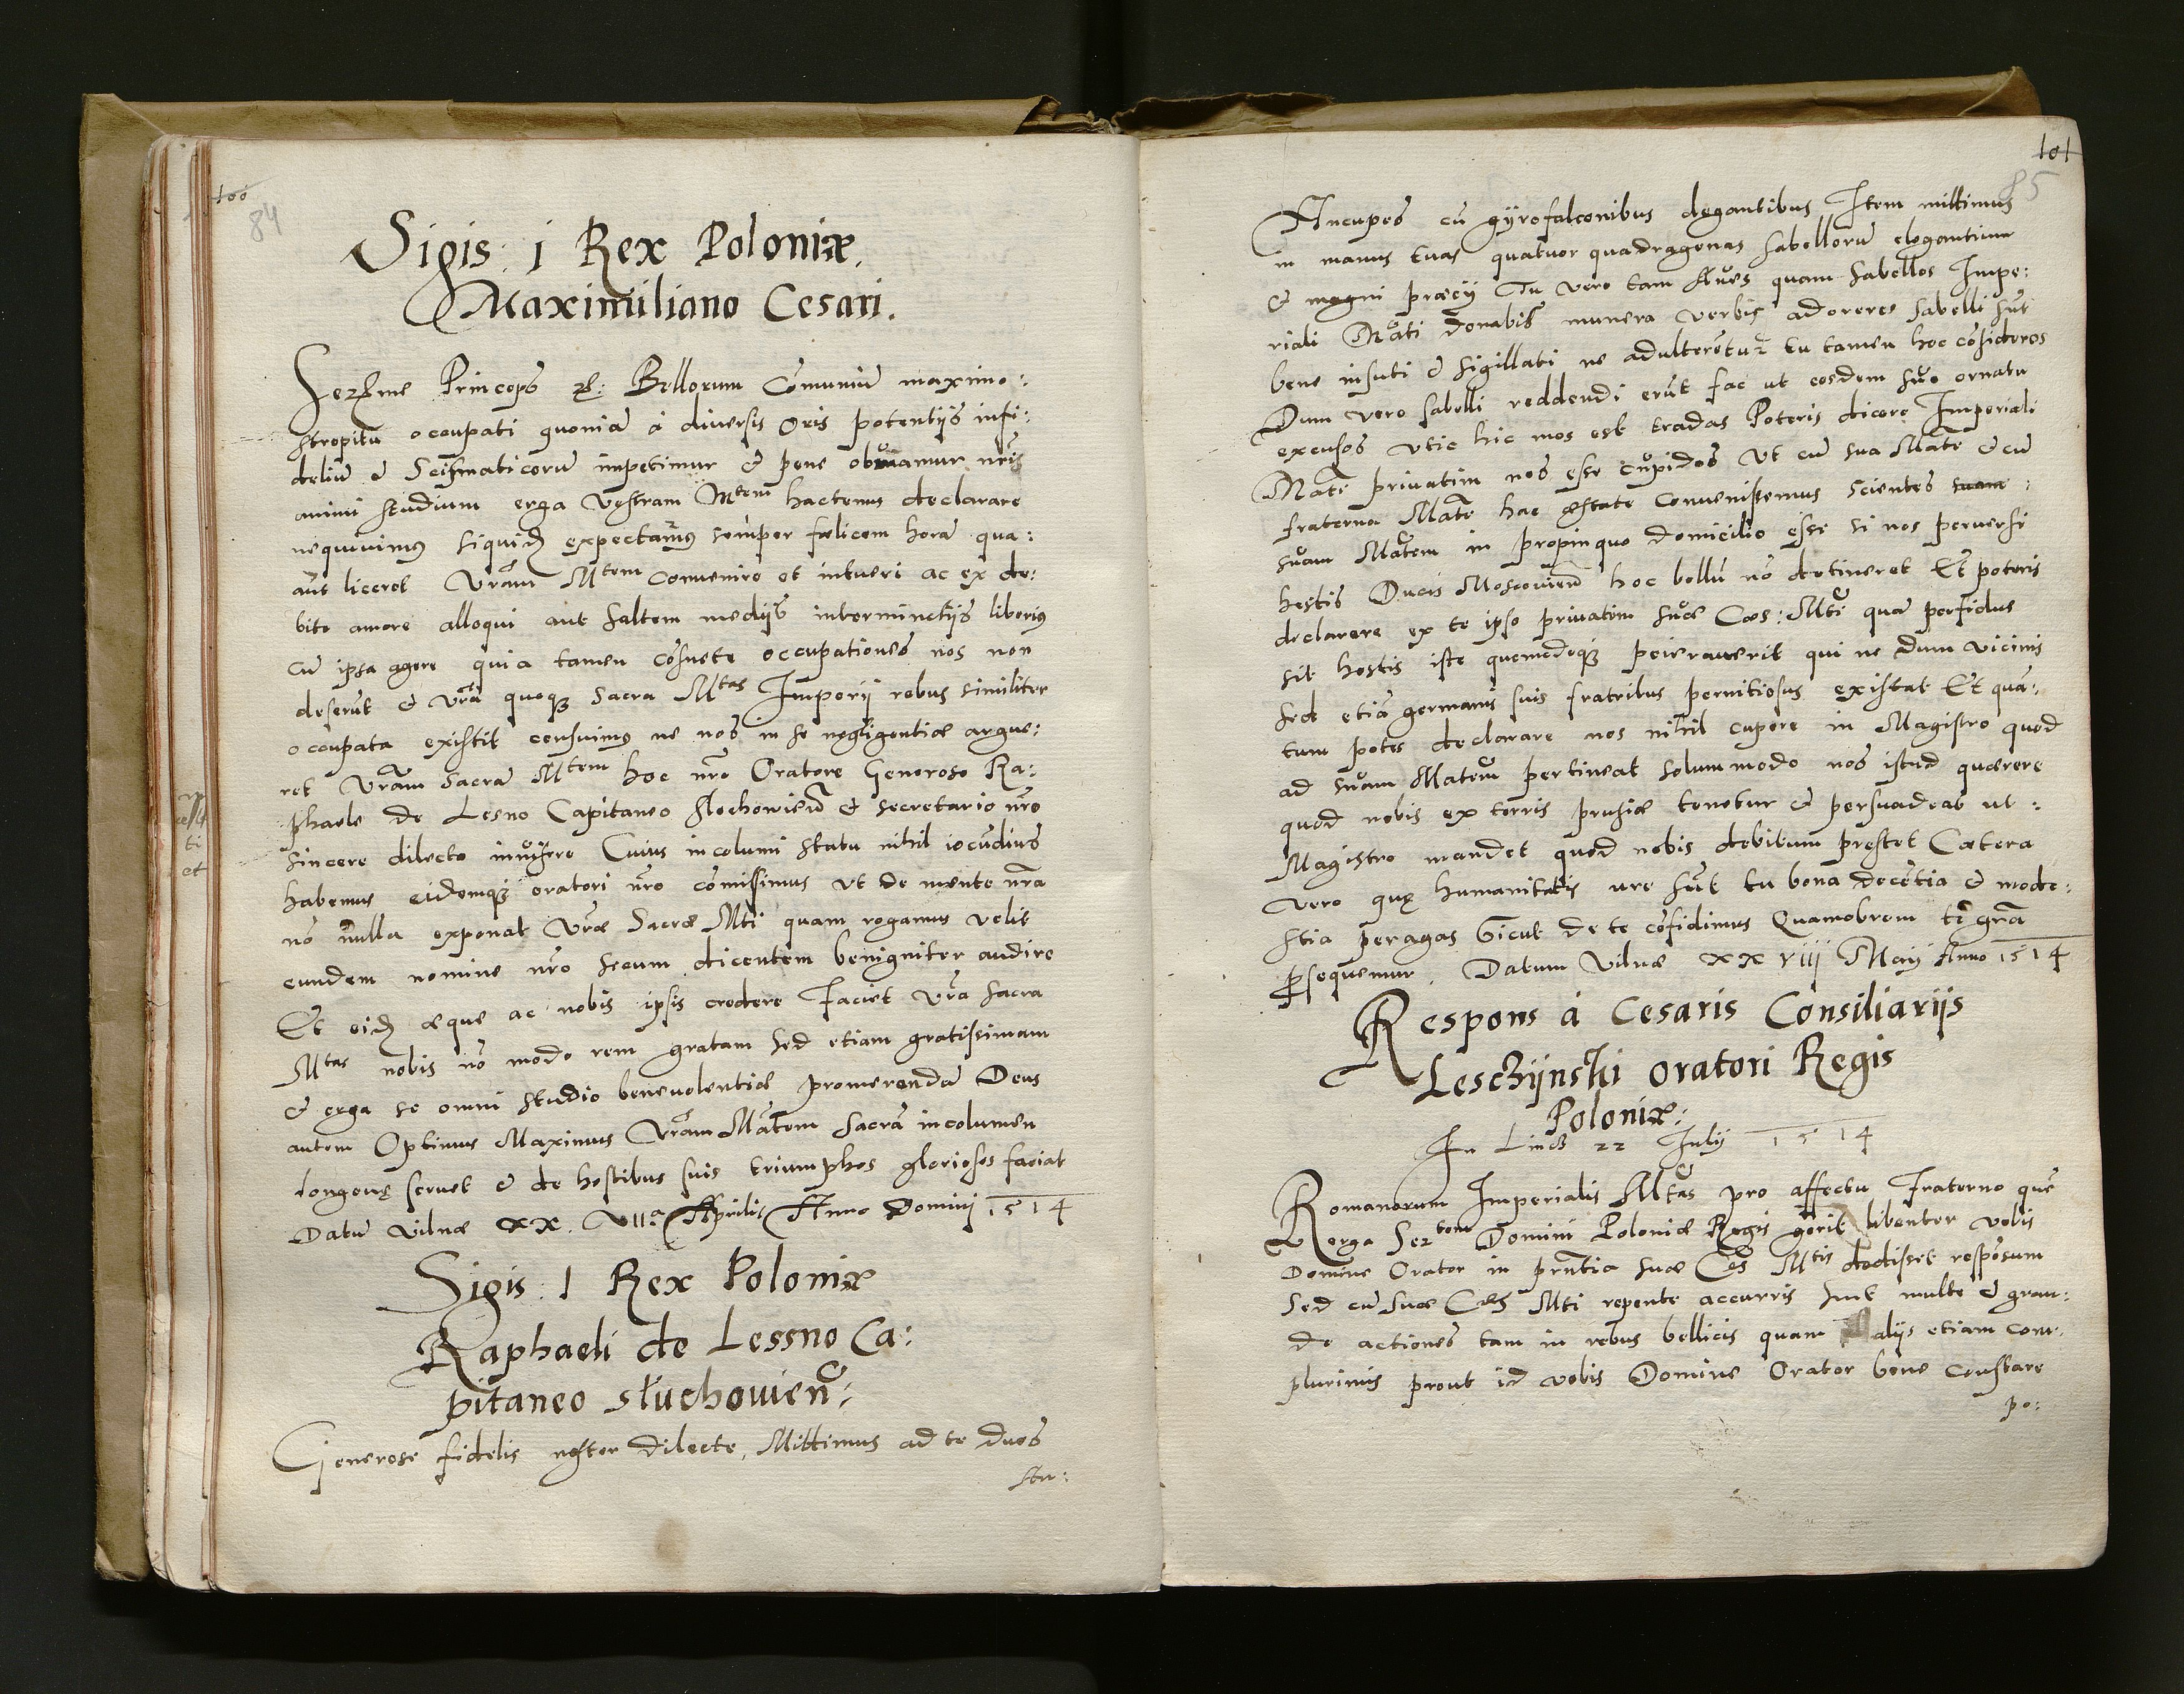 100
84
Sigis: 1 Rex Poloniæ
Maximiliano Cesari.
Princeps Bellorum Cõmuniũ maximo:
strepitu occupati quoniã á diuersis Oris potentijs infi:
deliũ & Scismaticorũ impetimur & pene nr̃i
animi studium erga Vestram Mtem hactenus declarare
nequiuimus siquid expectamus semper fælicem horã qua:
aut liceret Vrãm Mtem Conuenire et intueri ac ex de:
bito amore alloqui aut saltem medijs internunctijs liberius
cũ ipsa agere quia tamen cõsuete occupationes nos non
deserũt & vrã quoq3 Sacra Mtas Imperij rebus similiter
occupata existit censuimus ne nos in se negligentiæ argue:
ret Vrãm Sacrã Mtem hoc nrõ Oratore Generoso Ra:
phaele de Lesno Capitaneo & Secretario nrõ
sincere dilecto inuisere Cuius incolumi statu nihil iocũdius
habemus eidemq3 oratori nrõ cõmissimus vt de mente nrã
nõ nulla exponat Vræ Sacræ Mti quam rogamus velit
eundem nomine nrõ secum dicentem benigniter audire
Et eid æque ac nobis ipsis credere Faciet vrã sacra
Mtas nobis nõ modo rem gratam sed etiam gratissimam
& erga se omni studio beneuolentiæ promerendã Deus
autem Optimus Maximus Vrãm Mãtem Sacrã incolumen
longeuę seruet & de hostibus suis triumphos gloriosos faciat
Datũ Vilnæ XX. VIIa Aprilis Anno Domini 1514
Sigis: 1 Rex Poloniæ
Raphaeli de Lessno Ca:
pitaneo słuchouieñ:
Generose fidelis noster dilecte, Mittimus ad te duos
101
85
Aucupes cũ gyrofalconibus elegantibus Item mittimus
in manus tuas quatuor quadragenas sabellorũ elegantium
& magni præcij Tu vero tam Aues quam sabellos Impe:
riali Mãti donabis munera verbis adoreres sabelli sũt
bene insuti & sigillati ne adulterẽtur tu tamen hoc cõsideres
Dum vero sabelli reddendi erũt fac ut eosdem suo ornatu
excusos vtic hic mos est tradas Poteris dicere Imperiali
Mãti priuatim nos esse cupidos Vt cũ sua Mãte & cũ
fraterna Mãte hac æstate Conuenissemus scientes
suam Mãtem in propinquo domicilio esse si nos peruersi
hostis Ducis Moscouieñ hoc bellũ nõ detineret Et poteris
declarare ex te ipso priuatim suæ Cæs: Mti quã perfidus
sit hostis iste quomodoq3 peierauerit qui ne dum vicinis
sed etiã germanis suis fratribus pernitiosus existat Et quã:
tum potes declarare nos nihil cupere in Magistro quod
ad suam Mãtem pertineat solummodo nos istud quærere
quod nobis ex terris prusiæ tenetur & persuadeas ut:
Magistro mandet quod nobis debitum prestet Cætera
vero quę humanitatis ure sũt tu bona decẽtia & mode:
stia peragas Sicut de te cõfidimus Quamobrem te grã
psequemur. Datum Vilnæ XXVIII Maij Anno 1514
Respons á Cesaris Consiliarijs
Leschijnski oratori Regis
Poloniæ:
In Lincz 22 Julij 1514
Romanorum Imperialis Mtãs pro affectu Fraterno quẽ
erga Sertem Domini Poloniæ Regis gerit libenter vobis
Domine Orator in prñtia suæ Cæs Mtis dedisset respõsum
Sed cũ suæ Cæs Mti repente accurris sint multe & gran:
de actiones tam in rebus bellicis quam alijs etiam com:
plurimis prout id vobis Domine Orator bene Constare
po: